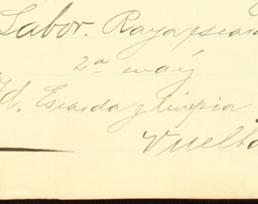 Labor. Raya y escarda
2ª
Id. Escarda y limpia
Vuelta